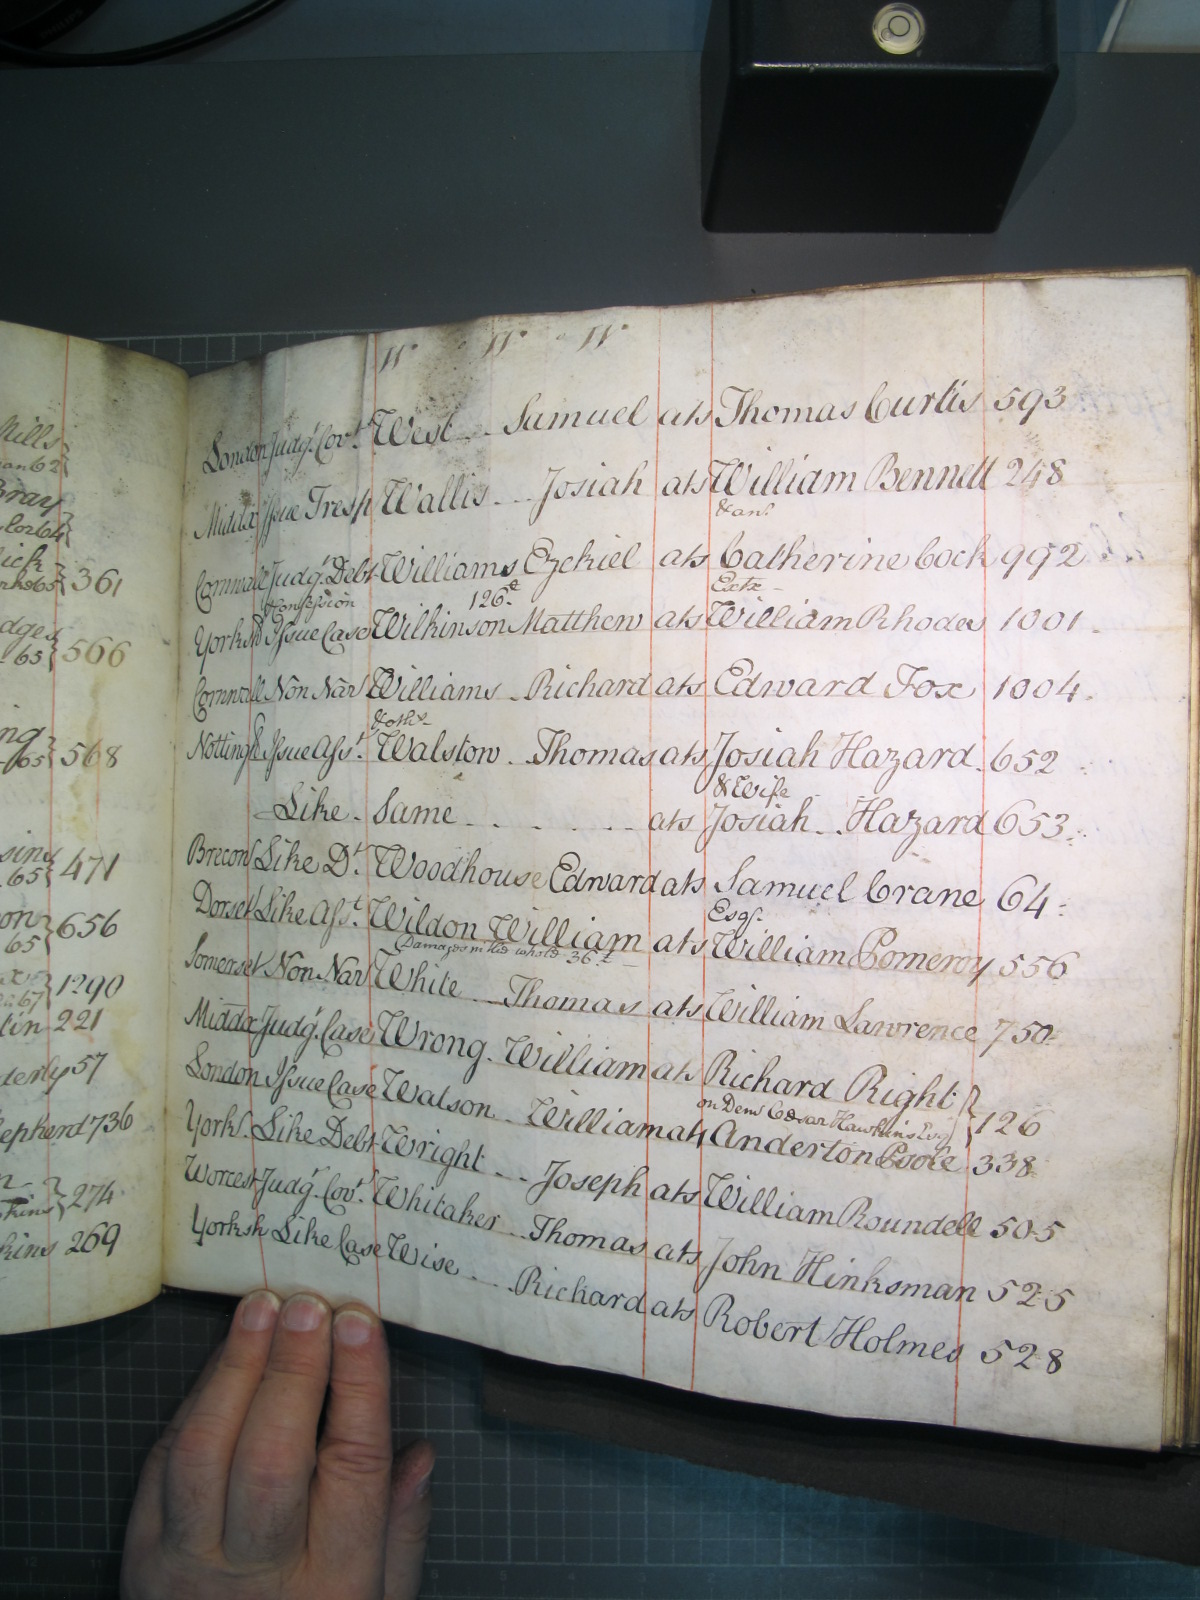 ills
an 62
Bray
lor 64
ick
rks 65 } 361
dges
65 } 566
ng
65 } 568
sins
65 } 471
on
65 } 656
67 } 1290
tin 221
derly 57
epherd 736
kins } 274
kins 269
W. W. W.
London Judgt. Covt. West Samuel ats Thomas Curtis 593
Middx Issue Tresp Wallis Josiah ats William Bennett 248
& anr.
Cornwall Judgt. Debt Williams Ezekiel ats Catherine Cock 992
Confession 126. Extx
Yorksh Issue Case Wilkinson Matthew ats William Rhodes 1001
Cornwall Non Narr Williams Richard ats Edward Fox 1004
& othrs
Nottingh Issue Asst. Walstow Thomas ats Josiah Hazard 652
& Wife
Like Same ats Josiah Hazard 653
Brecon Like Dt. Woodhouse Edward ats Samuel Crane 64
Esqr.
Dorset Like Asst. Wildon William ats William Pomeroy 556
Damages 36
Somerset Non Narr White Thomas ats William Lawrence 750
Middx Judgt. Case Wrong William ats Richard Right } 126
on Dem Cæsar Hawkins Esq
London Issue Case Watson William ats Anderton Poole 338
Yorks. Like Debt Wright Joseph ats William Roundell 505
Worcest Judgt. Covt. Whitaker Thomas ats John Hinksman 525
Yorksh Like Case Wise Richard ats Robert Holmes 528